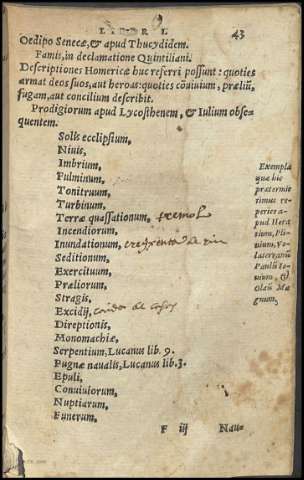 LIBER I. 43
Oedipo Senecæ, & apud Thucydidem.
Famis, in declamatione Quintiliani.
Descriptiones Homericæ huc referri possunt: quoties
armat deos suos, aut heroas: quoties cõuiuium, præliũ,
fugam, aut concilium describit.
Prodigiorum apud Lycosthenem, & Iulium obse-
quentem.
Solis ecclipsium,
Niuis,
Imbrium,
Fulminum,
Tonitruum,
Turbinum,
Terræ quassationum, tremol
Incendiorum,
Inundationum, de rios
Seditionum,
Exercituum,
Præliorum,
Stragis,
Excidij, caidas de casas
Direptionis,
Monomachiæ,
Serpentium, Lucanus lib. 9.
Pugnæ naualis, Lucanus lib. 3.
Epuli,
Conuiuiorum,
Nuptiarum,
Funerum,
Exempla
quæ hic
prætermit
timus re
peries a-
pud Hero
tium, Pli-
nium, Vo-
laterranũ
Paulũ Io-
uium, &
Olaũ Ma
gnum,
F iij Nau-